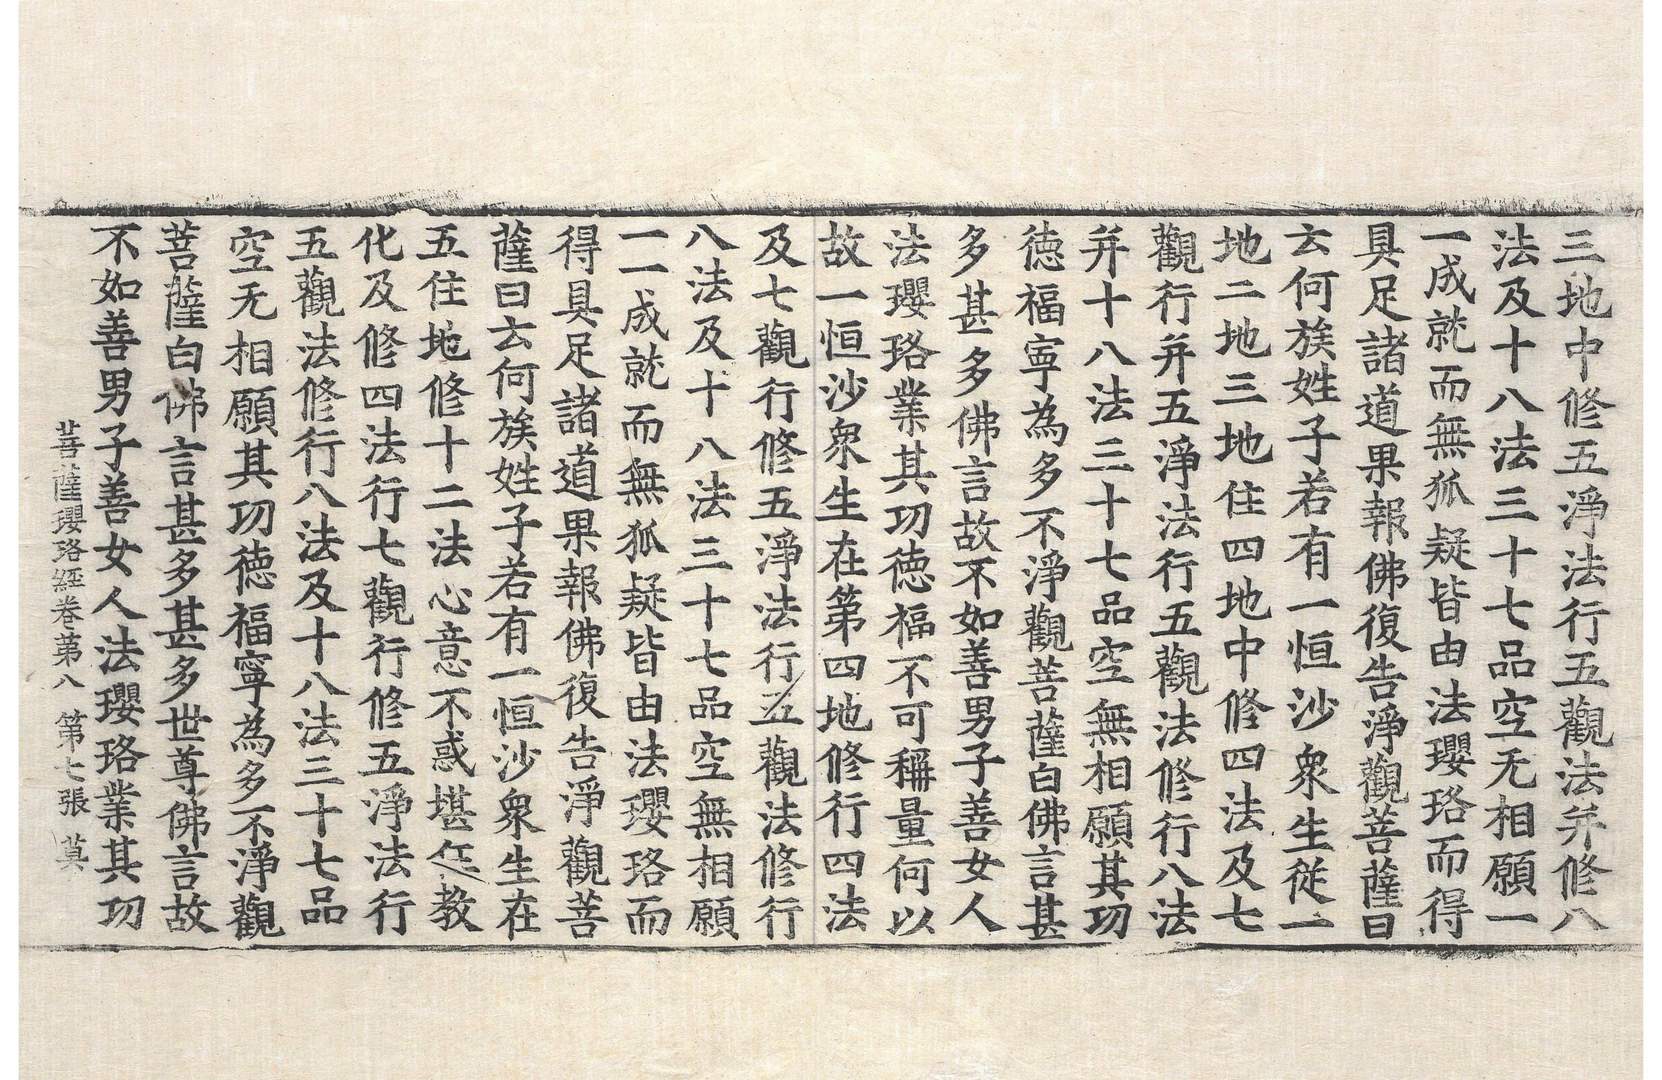 三地中修五淨法行五觀法并修八
法及十八法三十七品空无相願一
一成就而無狐疑皆由法瓔珞而得
具足諸道果報佛復告淨觀菩薩曰
云何族姓子若有一恒沙衆生從一
地二地三地住四地中修四法及七
觀行并五淨法行五觀法修行八法
并十八法三十七品空無相願其功
德福寧為多不淨觀菩薩白佛言甚
多甚多佛言故不如善男子善女人
法瓔珞業其功德福不可稱量何以
故一恒沙衆生在第四地修行四法
及七觀行修五淨法行五觀法修行
八法及十八法三十七品空無相願
一一成就而無狐疑皆由法瓔珞而
得具足諸道果報佛復告淨觀菩
薩曰云何族姓子若有一恒沙衆生在
五住地修十二法心意不惑堪任教
化及修四法行七觀行修五淨法行
五觀法修行八法及十八法三十七品
空无相願其功德福寧為多不淨觀
菩薩白佛言甚多甚多世尊佛言故
不如善男子善女人法瓔珞業其功
菩薩瓔珞經卷第八 第七張 莫